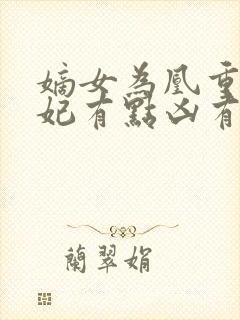 嫡女為凰重
妃有點凶有
蘭翠娟